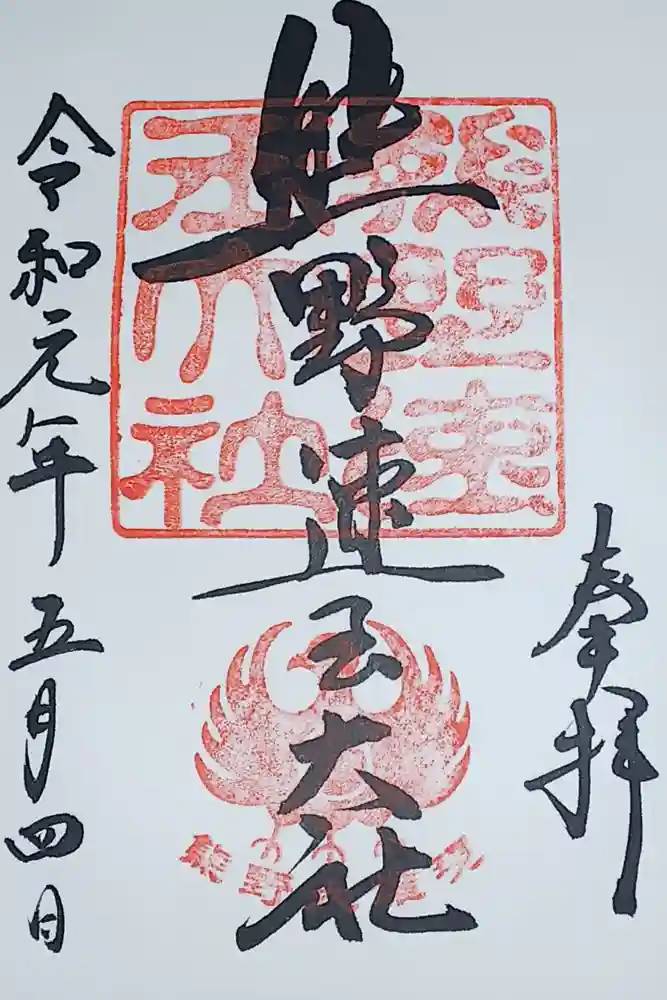 奉拝
熊野速玉大社
令和元年五月四日
熊野速玉大社